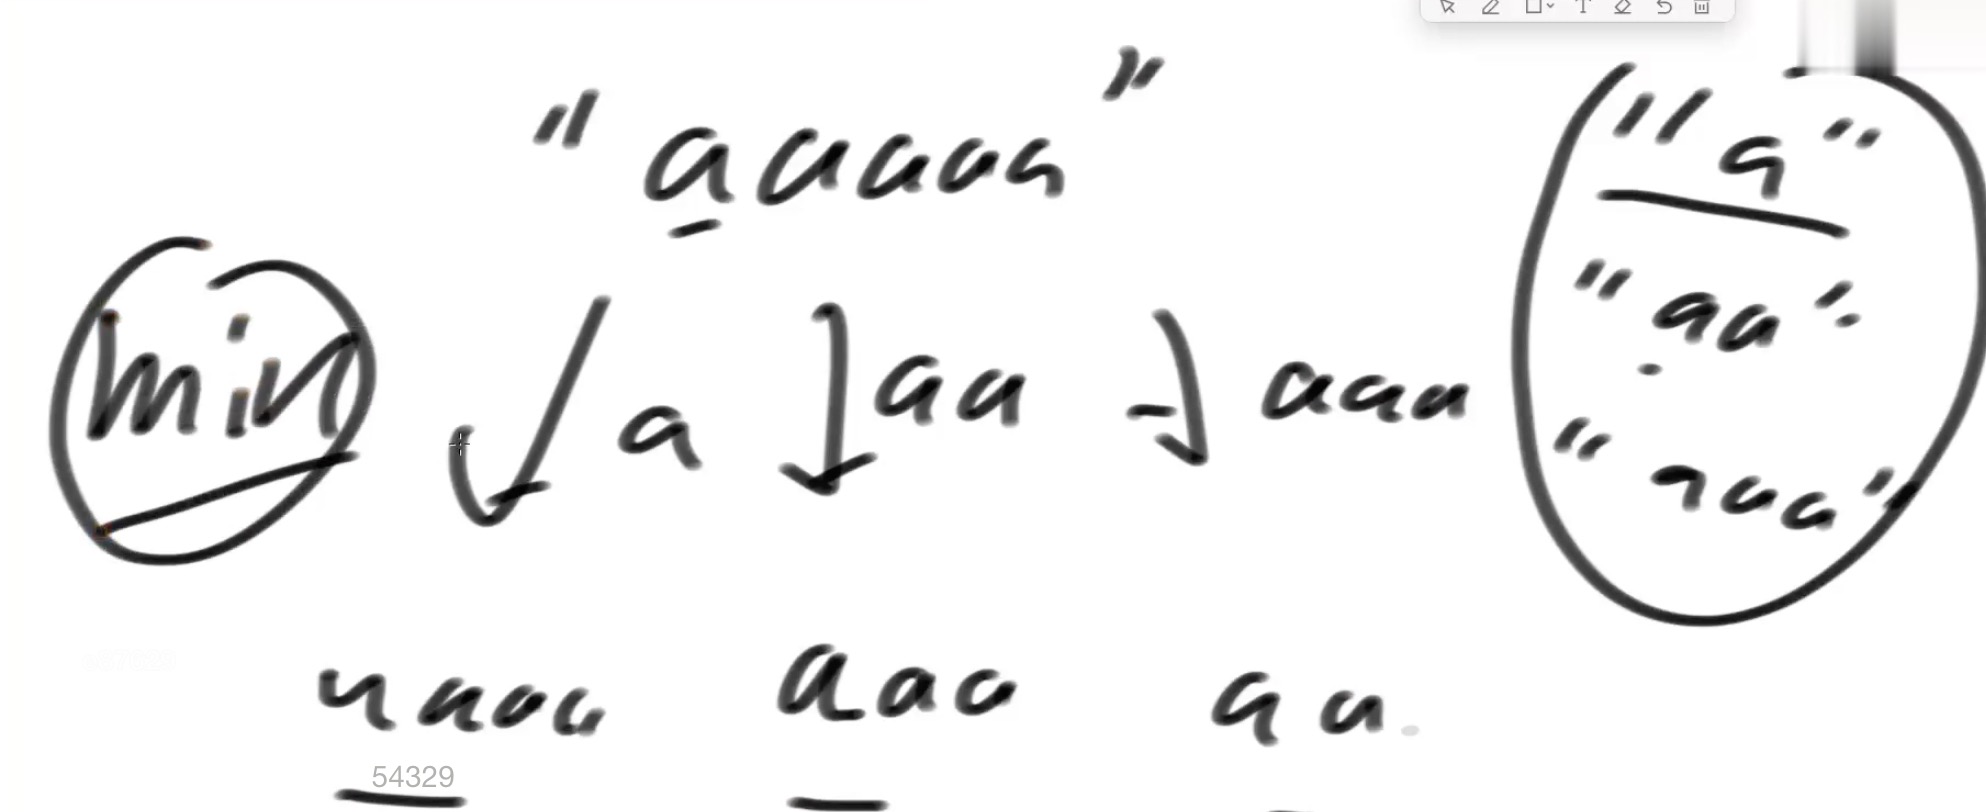 "aaaaa"
"a"
"aa"
"aaa"
min
a
aa
aaa
aaaa
aaa
aa
54329